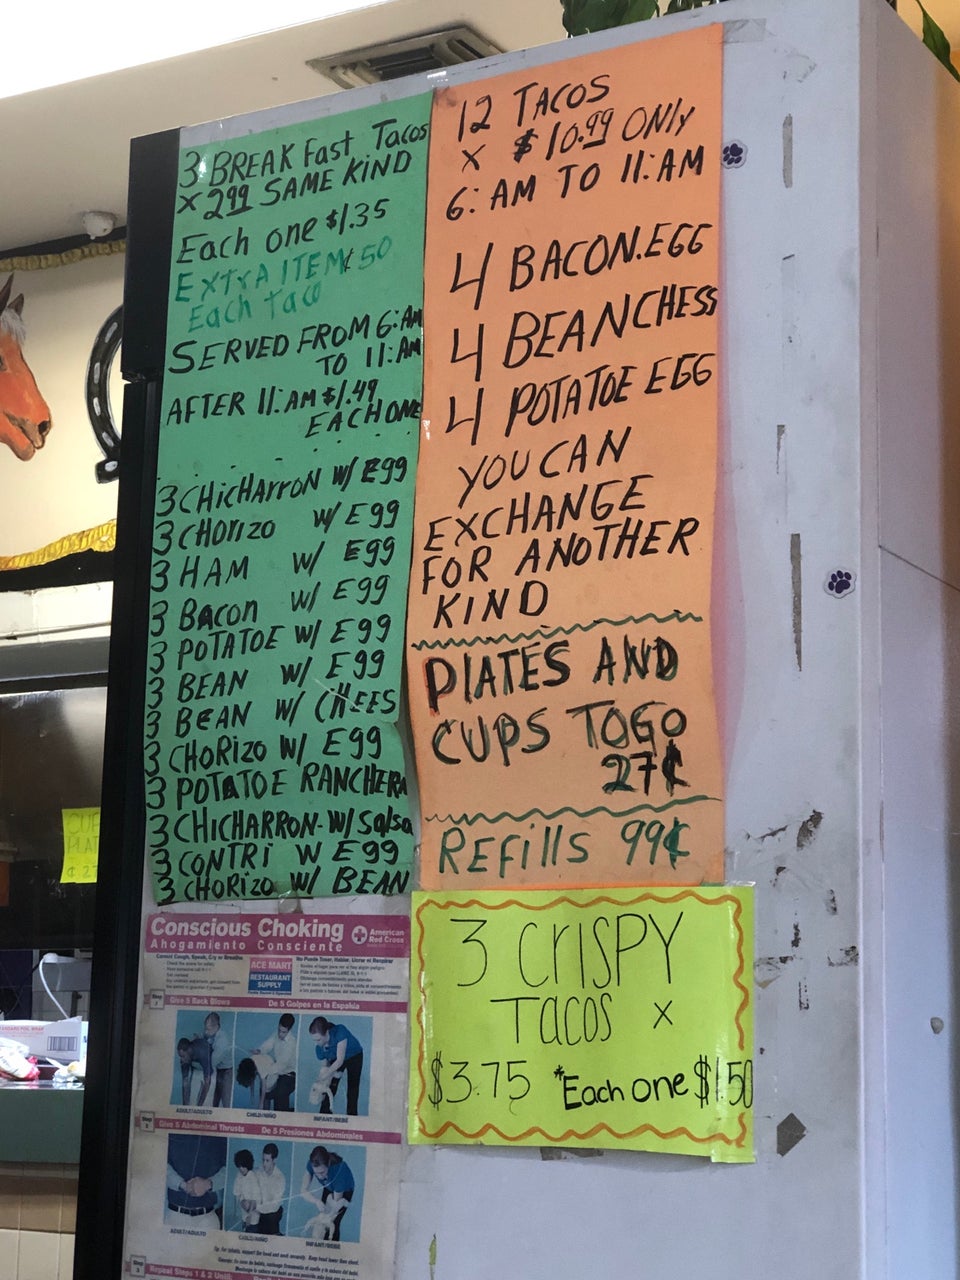 3 BREAK Fast Tacos
x 2.99 SAME KIND
Each one $1.35
EXTRA ITEM ¢50
Each taco
SERVED FROM 6:AM
TO 11:AM
AFTER 11:AM $1.49
EACH ONE
3 CHicHArroN W/ Egg
3 CHOrizo W/ Egg
3 HAM W/ Egg
3 BAcon W/ Egg
3 POTATOE W/ Egg
3 BEAN W/ Egg
3 BEAN W/ CHEES
3 CHORIZO W/ Egg
3 POTATOE RANCHERA
3 CHICHARRON-W/ Salsa
3 CONTRI W Egg
3 CHORIZO W/ BEAN
12 TACOS
x $10.99 ONLY
6:AM TO 11:AM
4 BACON.EGG
4 BEANCHESS
4 POTATOE EGG
YOU CAN
EXCHANGE
FOR ANOTHER
KIND
PlATES AND
CUPS TOGO
27¢
REFills 99¢
3 CrISPY
TACOS x
$3.75 *Each one $1.50
Conscious Choking
Ahogamiento Consciente
American
Red Cross
ACE MART
RESTAURANT
SUPPLY
Give 5 Back Blows De 5 Golpes en la Espalda
ADULT/ADULTO CHILD/NIÑO INFANT/BEBÉ
Give 5 Abdominal Thrusts De 5 Presiones Abdominales
ADULT/ADULTO CHILD/NIÑO INFANT/BEBÉ
Repeat Steps 1 & 2 Until: